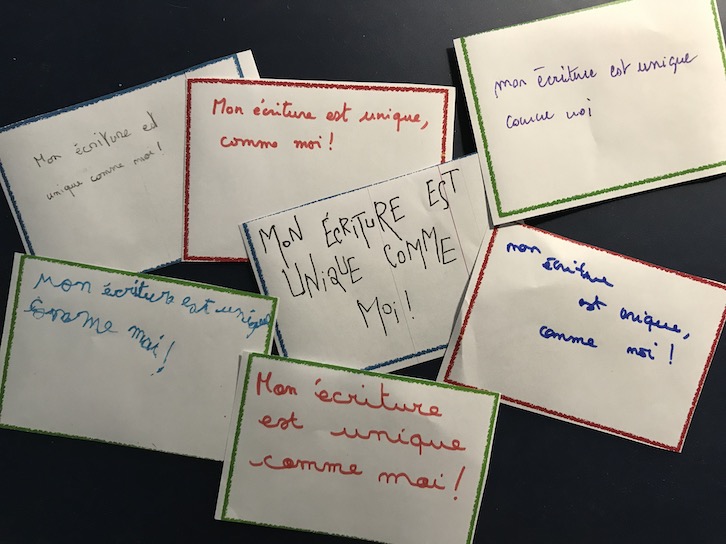 Mon écriture est
unique comme moi !
Mon écriture est unique,
comme moi !
mon écriture est unique
comme moi
MON ÉCRITURE EST
UNIQUE COMME
MOI !
Mon écriture est unique
comme moi !
mon
écriture
est unique,
comme moi !
Mon écriture
est unique
comme moi !